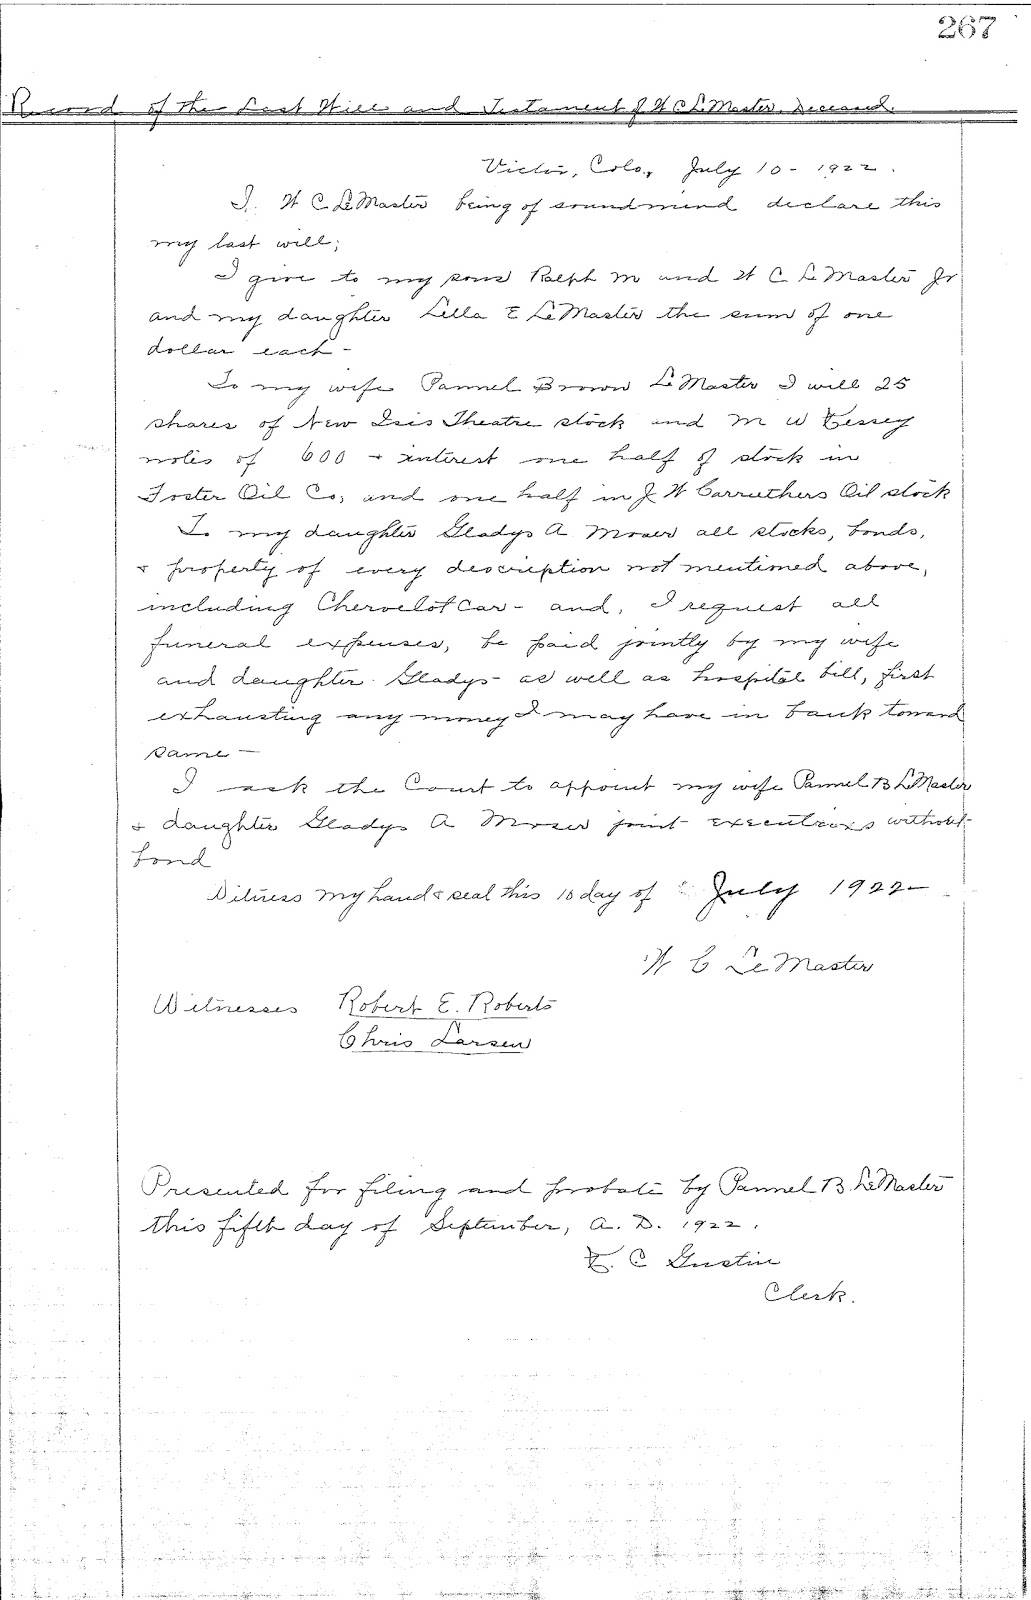 267
Record of the Last Will and Testament of W C LeMaster, Deceased.
Victor, Colo, July 10 - 1922.
I. W C LeMaster being of sound mind declare this
my last will;
I give to my sons Ralph M and W C LeMaster Jr
and my daughter Lella E LeMaster the sum of one
dollar each -
To my wife Pannel Brown LeMaster I will 25
shares of New Isis Theatre stock and M W
notes of 600 + interest one half of stock in
Foster Oil Co, and one half in J W Carruthers Oil stock
To my daughter Gladys A Moser all stocks, bonds,
+ property of every description not mentioned above,
including Chervelot Car - and, I request all
funeral expenses, be paid jointly by my wife
and daughter Gladys - as well as hospital bill, first
exhausting any money I may have in bank toward
same -
I ask the Court to appoint my wife Pannel B LeMaster
+ daughter Gladys A Moser joint executrixs without
bond
Witness my hand + seal this 10 day of July 1922 -
W C LeMaster
Witnesses Robert E. Roberts
Chris Larsen
Presented for filing and probate by Pannel B. LeMaster
this fifth day of September, A. D. 1922.
C Gustin
Clerk.